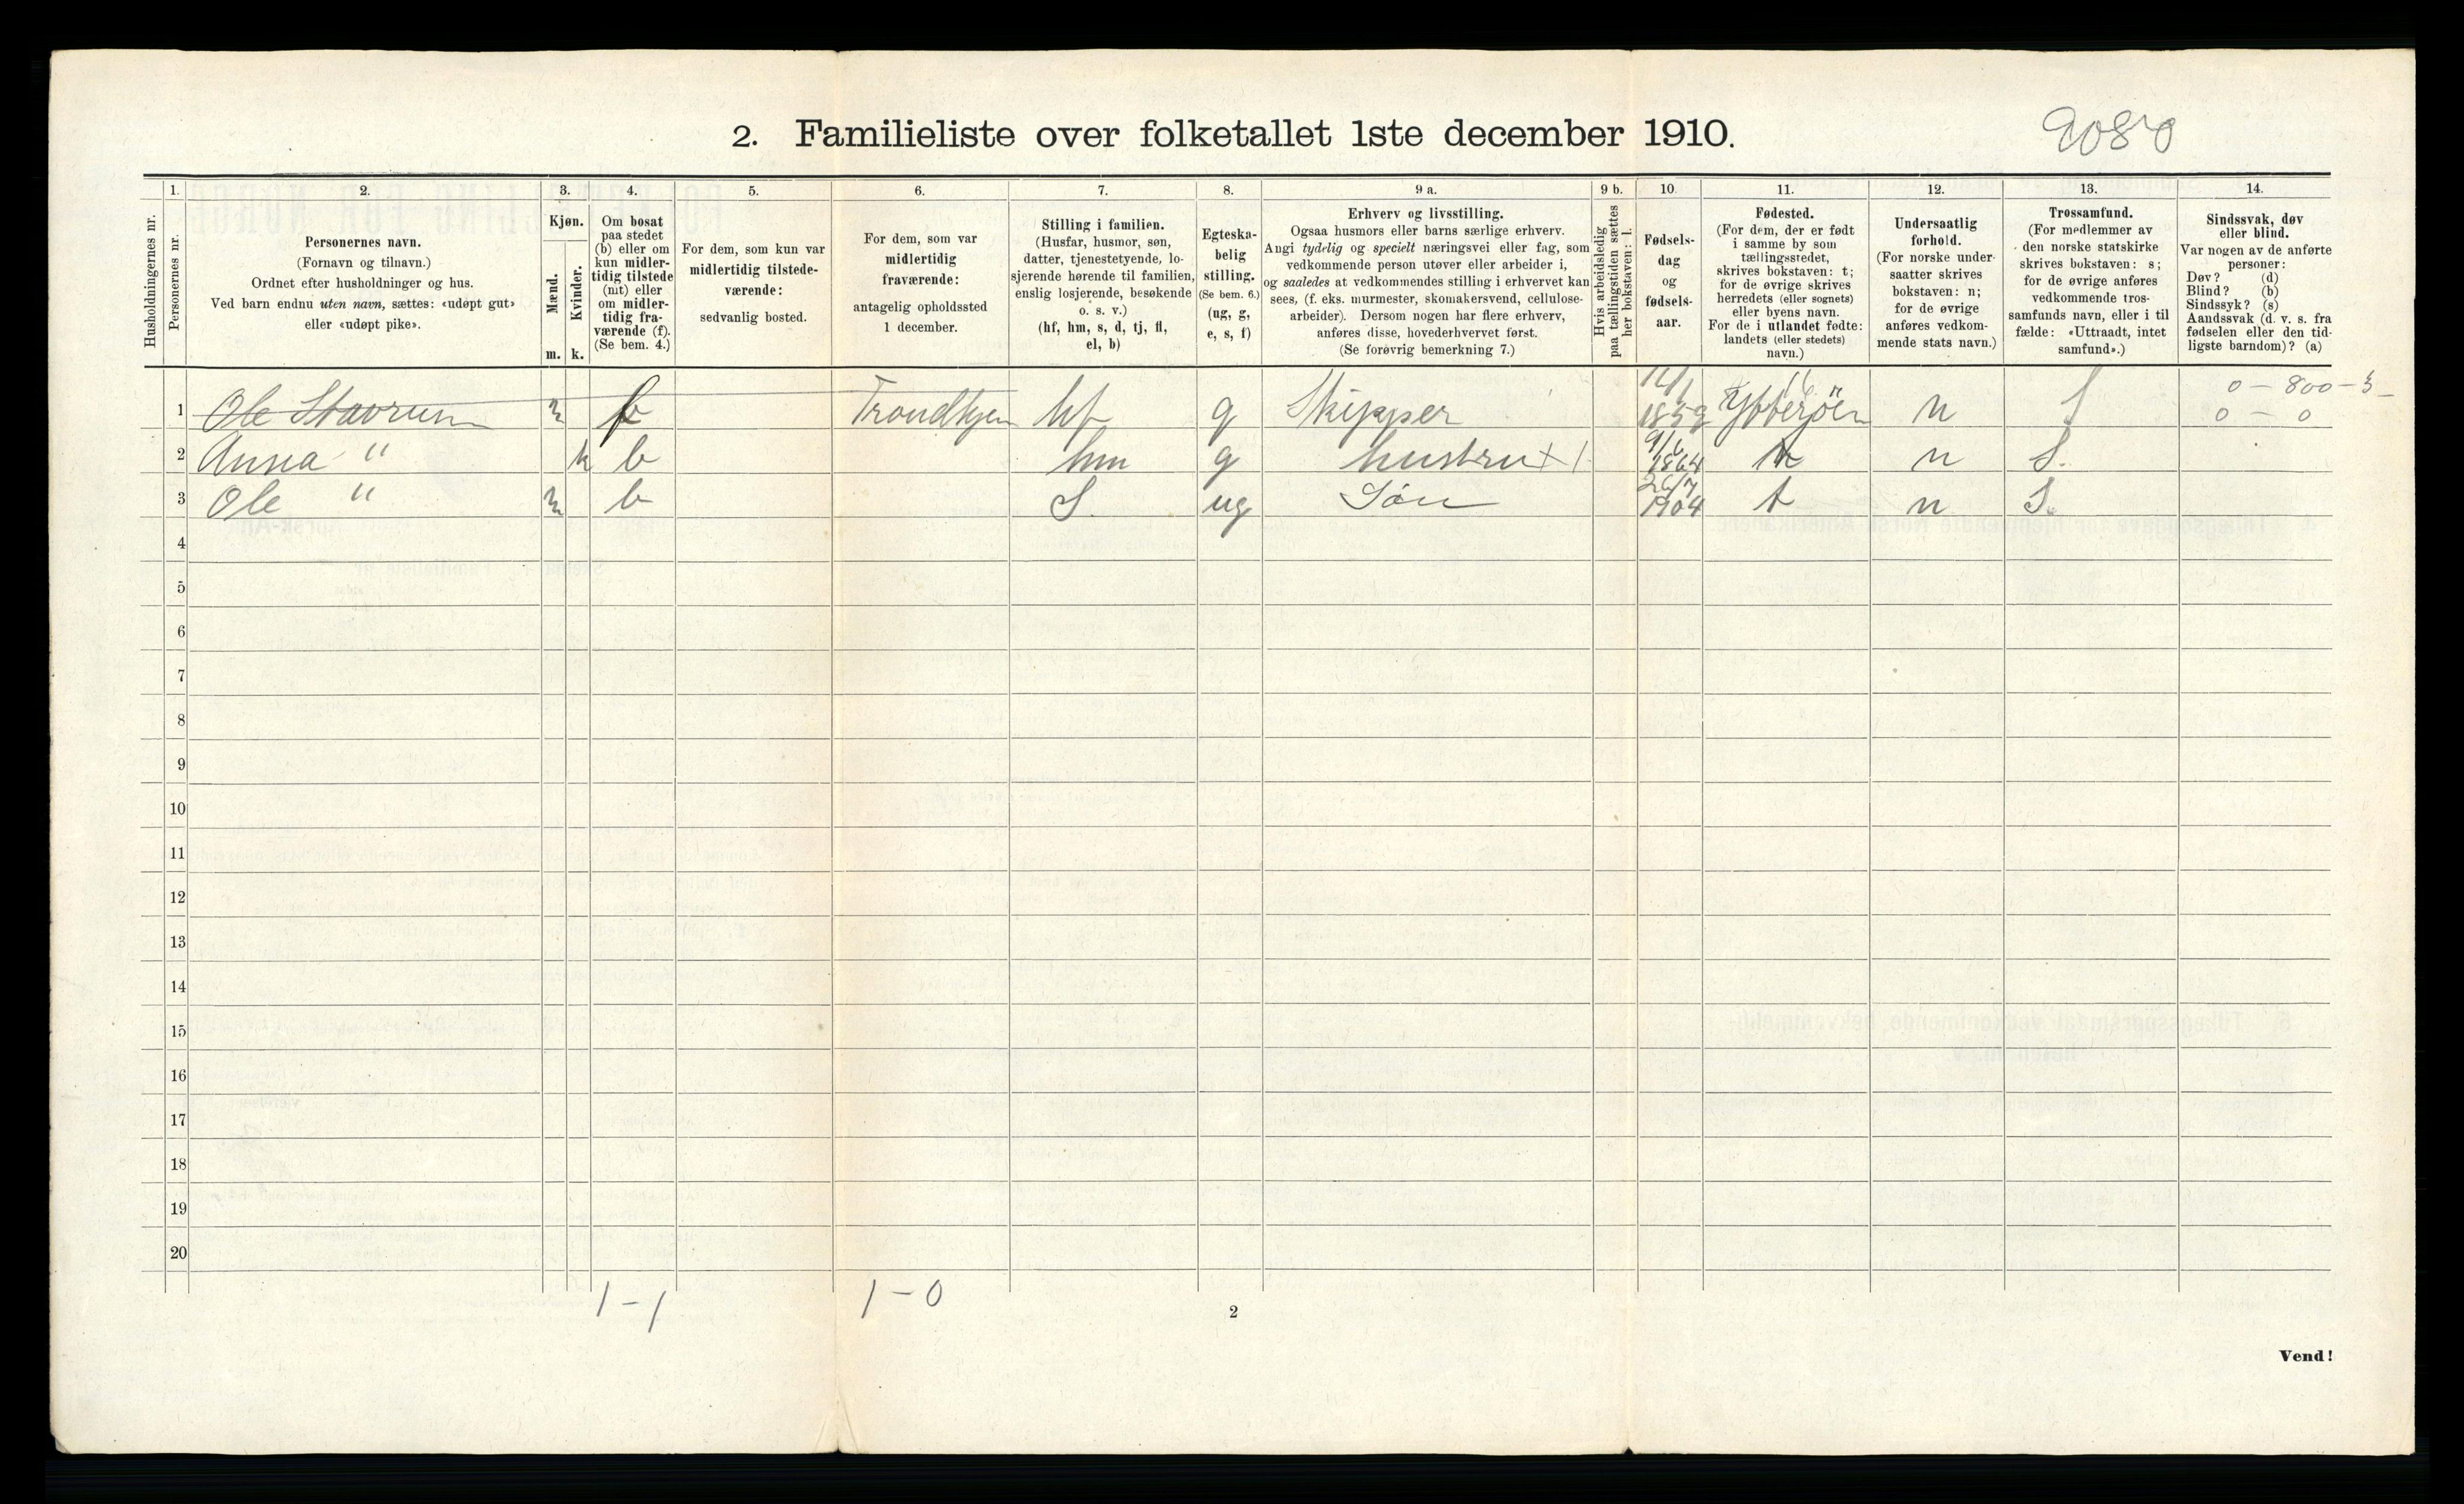 2. Familieliste over folketallet 1ste december 1910.
9080
1. 2. 3. 4. 5. 6. 7. 8. 9 a. 9 b. 10. 11. 12. 13. 14.
Husholdningernes nr.
Personernes nr.
Personernes navn.
(Fornavn og tilnavn.)
Ordnet efter husholdninger og hus.
Ved barn endnu uten navn, sættes: «udøpt gut»
eller «udøpt pike».
Kjøn.
Mænd.
Kvinder.
m. k.
Om bosat
paa stedet
(b) eller om
kun midler-
tidig tilstede
(mt) eller
om midler-
tidig fra-
værende (f).
(Se bem. 4.)
For dem, som kun var
midlertidig tilstede-
værende:
sedvanlig bosted.
For dem, som var
midlertidig
fraværende:
antagelig opholdssted
1 december.
Stilling i familien.
(Husfar, husmor, søn,
datter, tjenestetyende, lo-
sjerende hørende til familien,
enslig losjerende, besøkende
o. s. v.)
(hf, hm, s, d, tj, fl,
el, b)
Egteska-
belig
stilling.
(Se bem. 6.)
(ug, g,
e, s, f)
Erhverv og livsstilling.
Ogsaa husmors eller barns særlige erhverv.
Angi tydelig og specielt næringsvei eller fag, som
vedkommende person utøver eller arbeider i,
og saaledes at vedkommendes stilling i erhvervet kan
sees, (f. eks. murmester, skomakersvend, cellulose-
arbeider). Dersom nogen har flere erhverv,
anføres disse, hovederhvervet først.
(Se forøvrig bemerkning 7.)
Hvis arbeidsledig
paa tællingstiden sættes
her bokstaven: l.
Fødsels-
dag
og
fødsels-
aar.
Fødested.
(For dem, der er født
i samme by som
tællingsstedet,
skrives bokstaven: t;
for de øvrige skrives
herredets (eller sognets)
eller byens navn.
For de i utlandet fødte:
landets (eller stedets)
navn.)
Undersaatlig
forhold.
(For norske under-
saatter skrives
bokstaven: n;
for de øvrige
anføres vedkom-
mende stats navn.)
Trossamfund.
(For medlemmer av
den norske statskirke
skrives bokstaven: s;
for de øvrige anføres
vedkommende tros-
samfunds navn, eller i til
fælde: «Uttraadt, intet
samfund».)
Sindssvak, døv
eller blind.
Var nogen av de anførte
personer:
Døv? (d)
Blind? (b)
Sindssyk? (s)
Aandssvak (d. v. s. fra
fødselen eller den tid-
ligste barndom)? (a)
1 Ole Stavrum m f Trondhjem hf g Skipper 1859 Ytterøen n S 0 - 800 - 0 - 0
2 Anna " k b hm g hustru 9/6 1864 t n S.
3 Ole " m b S. ug Søn 26/7 1904 t n S.
4
5
6
7
8
9
10
11
12
13
14
15
16
17
18
19
20
1 - 1 1 - 0
2
Vend!